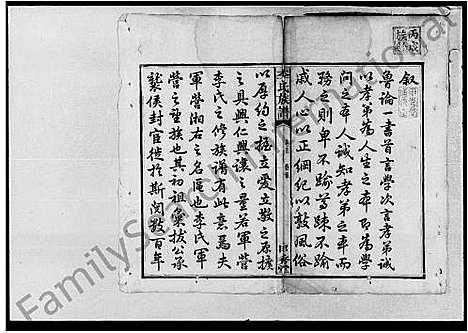 叙
魯論一書首言學次言孝弟誠
以孝弟為人生之本即為學
問之本人誠知孝弟之本而
務之則卑不踰尊疎不踰
戚人心以正綱紀以敦風俗
以厚約之極立愛立敬之原擴
之具興仁興讓之量若軍營
李氏之修族譜有此意焉夫
軍營湘右之名區也李氏軍
營之望族也其初祖彙拔公承
襲侯封官徙於斯閱數百年
李氏族譜
FamilySearch International